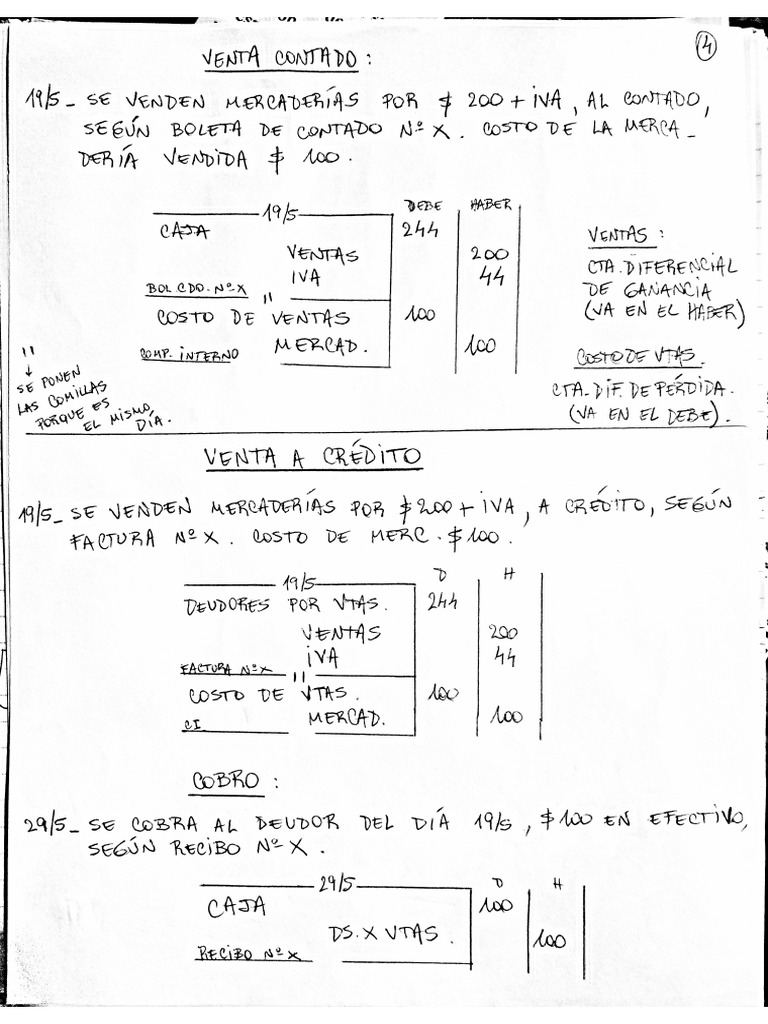 4
VENTA CONTADO:
19/5_ SE VENDEN MERCADERÍAS POR $ 200 + IVA, AL CONTADO,
SEGÚN BOLETA DE CONTADO Nº X. COSTO DE LA MERCA_
DERÍA VENDIDA $ 100.
DEBE HABER
19/5
CAJA 244
VENTAS 200
IVA 44
BOL CDO. Nº X "
COSTO DE VENTAS 100
COMP. INTERNO MERCAD. 100
VENTAS:
CTA. DIFERENCIAL
DE GANANCIA
(VA EN EL HABER)
COSTO DE VTAS.
CTA. DIF. DE PÉRDIDA.
(VA EN EL DEBE).
"
↓
SE PONEN
LAS COMILLAS
PORQUE ES
EL MISMO
DÍA.
VENTA A CRÉDITO
19/5_ SE VENDEN MERCADERÍAS POR $ 200 + IVA, A CRÉDITO, SEGÚN
FACTURA Nº X. COSTO DE MERC. $ 100.
D H
19/5
DEUDORES POR VTAS. 244
VENTAS 200
IVA 44
FACTURA Nº X "
COSTO DE VTAS. 100
CI MERCAD. 100
COBRO:
29/5_ SE COBRA AL DEUDOR DEL DÍA 19/5, $ 100 EN EFECTIVO,
SEGÚN RECIBO Nº X.
D H
29/5
CAJA 100
DS. X VTAS. 100
RECIBO Nº X